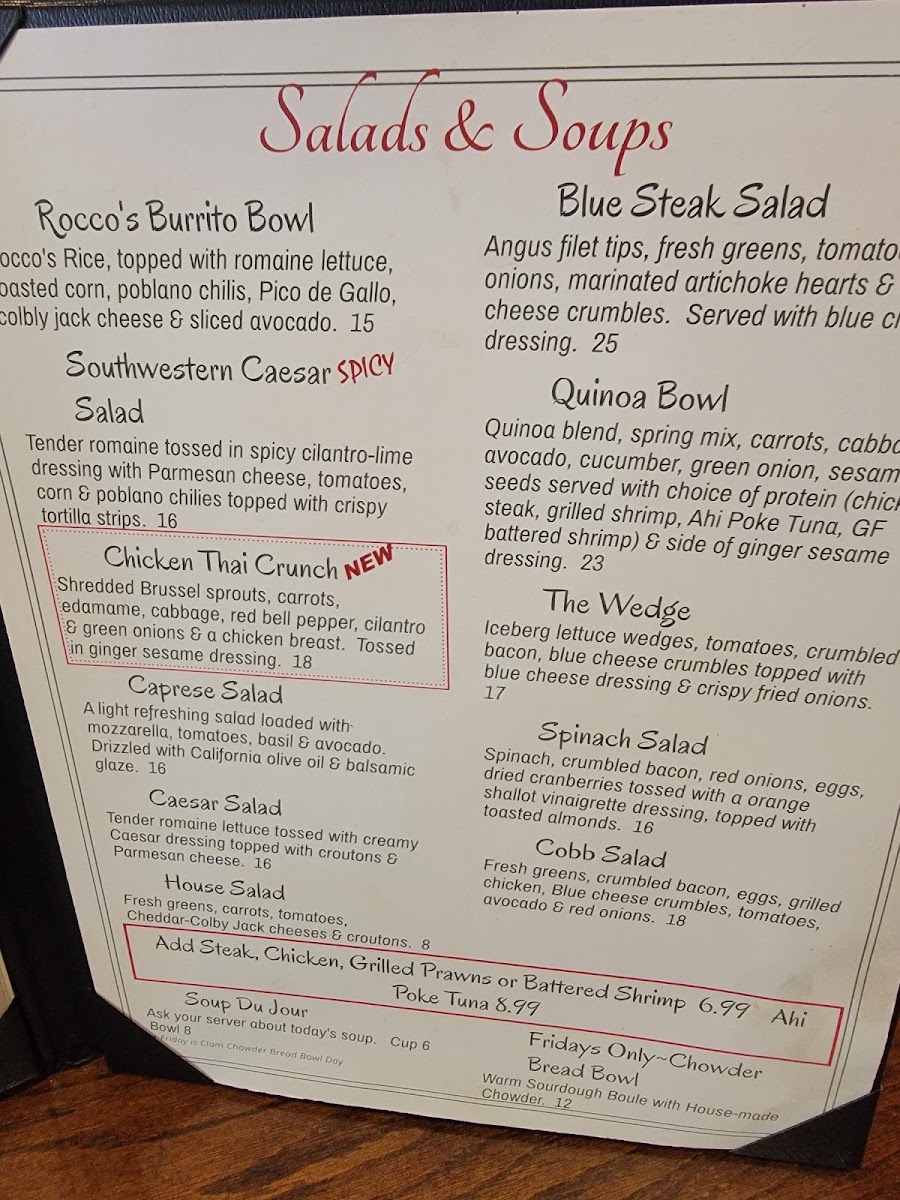 Salads & Soups
Rocco's Burrito Bowl
occo's Rice, topped with romaine lettuce,
oasted corn, poblano chilis, Pico de Gallo,
colbly jack cheese & sliced avocado. 15
Southwestern Caesar SPICY
Salad
Tender romaine tossed in spicy cilantro-lime
dressing with Parmesan cheese, tomatoes,
corn & poblano chilies topped with crispy
tortilla strips. 16
Chicken Thai Crunch NEW
Shredded Brussel sprouts, carrots,
edamame, cabbage, red bell pepper, cilantro
& green onions & a chicken breast. Tossed
in ginger sesame dressing. 18
Caprese Salad
A light refreshing salad loaded with
mozzarella, tomatoes, basil & avocado.
Drizzled with California olive oil & balsamic
glaze. 16
Caesar Salad
Tender romaine lettuce tossed with creamy
Caesar dressing topped with croutons &
Parmesan cheese. 16
House Salad
Fresh greens, carrots, tomatoes,
Cheddar-Colby Jack cheeses & croutons. 8
Blue Steak Salad
Angus filet tips, fresh greens, tomato
onions, marinated artichoke hearts &
cheese crumbles. Served with blue ch
dressing. 25
Quinoa Bowl
Quinoa blend, spring mix, carrots, cabba
avocado, cucumber, green onion, sesam
seeds served with choice of protein (chick
steak, grilled shrimp, Ahi Poke Tuna, GF
battered shrimp) & side of ginger sesame
dressing. 23
The Wedge
Iceberg lettuce wedges, tomatoes, crumbled
bacon, blue cheese crumbles topped with
blue cheese dressing & crispy fried onions.
17
Spinach Salad
Spinach, crumbled bacon, red onions, eggs,
dried cranberries tossed with a orange
shallot vinaigrette dressing, topped with
toasted almonds. 16
Cobb Salad
Fresh greens, crumbled bacon, eggs, grilled
chicken, Blue cheese crumbles, tomatoes,
avocado & red onions. 18
Add Steak, Chicken, Grilled Prawns or Battered Shrimp 6.99 Ahi
Poke Tuna 8.99
Soup Du Jour
Ask your server about today's soup. Cup 6
Bowl 8
Friday is Clam Chowder Bread Bowl Day
Fridays Only~Chowder
Bread Bowl
Warm Sourdough Boule with House-made
Chowder. 12